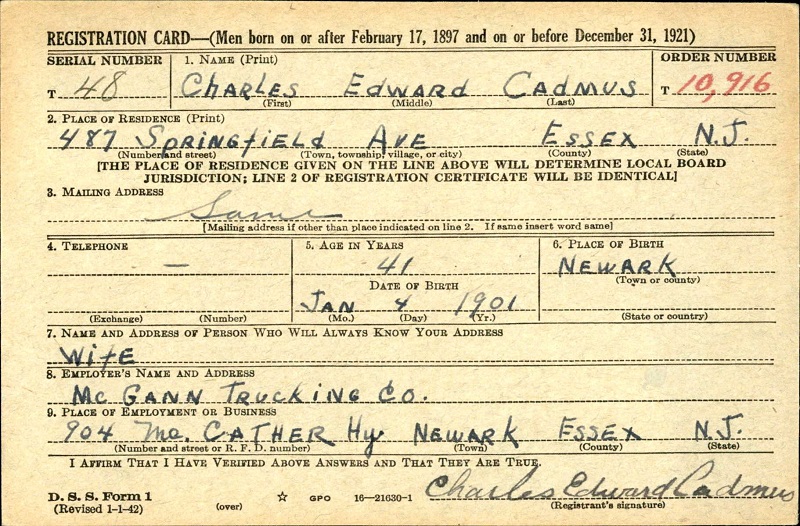 REGISTRATION CARD—(Men born on or after February 17, 1897 and on or before December 31, 1921)
SERIAL NUMBER 1. NAME (Print) ORDER NUMBER
T 48 CHARLES EDWARD CADMUS T 10,916
(First) (Middle) (Last)
2. PLACE OF RESIDENCE (Print)
487 SPRINGfIELD AVE ESSEX N.J.
(Number and street) (Town, township, village, or city) (County) (State)
[THE PLACE OF RESIDENCE GIVEN ON THE LINE ABOVE WILL DETERMINE LOCAL BOARD
JURISDICTION; LINE 2 OF REGISTRATION CERTIFICATE WILL BE IDENTICAL]
3. MAILING ADDRESS
Same
[Mailing address if other than place indicated on line 2. If same insert word same]
4. TELEPHONE 5. AGE IN YEARS 6. PLACE OF BIRTH
— 41 NEWARK
DATE OF BIRTH (Town or county)
JAN 4 1901
(Exchange) (Number) (Mo.) (Day) (Yr.) (State or country)
7. NAME AND ADDRESS OF PERSON WHO WILL ALWAYS KNOW YOUR ADDRESS
WifE
8. EMPLOYER'S NAME AND ADDRESS
Mc GANN TRUCKING CO.
9. PLACE OF EMPLOYMENT OR BUSINESS
904 Mc. CATHER Hy NEWARK ESSEX N.J.
(Number and street or R. F. D. number) (Town) (County) (State)
I AFFIRM THAT I HAVE VERIFIED ABOVE ANSWERS AND THAT THEY ARE TRUE.
D. S. S. Form 1 Charles Edward Cadmus
(Revised 1-1-42) (over) ☆ GPO 16—21630-1 (Registrant's signature)